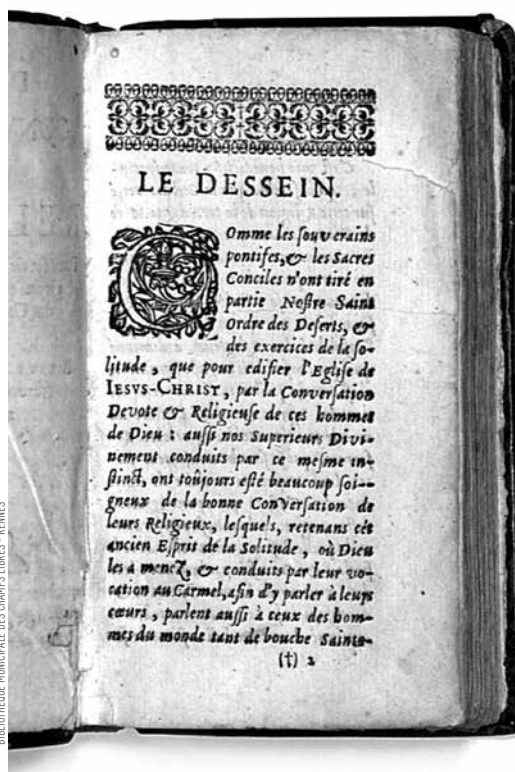 LE DESSEIN.
Comme les souverains
pontifes, & les Sacres
Conciles n'ont tiré en
partie Nostre Saint
Ordre des Deserts, &
des exercices de la so-
litude, que pour edifier l'Eglise de
IESVS-CHRIST, par la Conversation
Devote & Religieuse de ces hommes
de Dieu : aussi nos Superieurs Divi-
nement conduits par ce mesme in-
stinct, ont toûjours esté beaucoup soi-
gneux de la bonne Conversation de
leurs Religieux, lesquels, retenans cét
ancien Esprit de la Solitude, où Dieu
les a menez, & conduits par leur vo-
cation au Carmel, afin d'y parler à leurs
cœurs, parlent aussi à ceux des hom-
mes du monde tant de bouche Sainte-
(†) 2
BIBLIOTHÈQUE MUNICIPALE DES CHAMPS LIBRES - RENNES